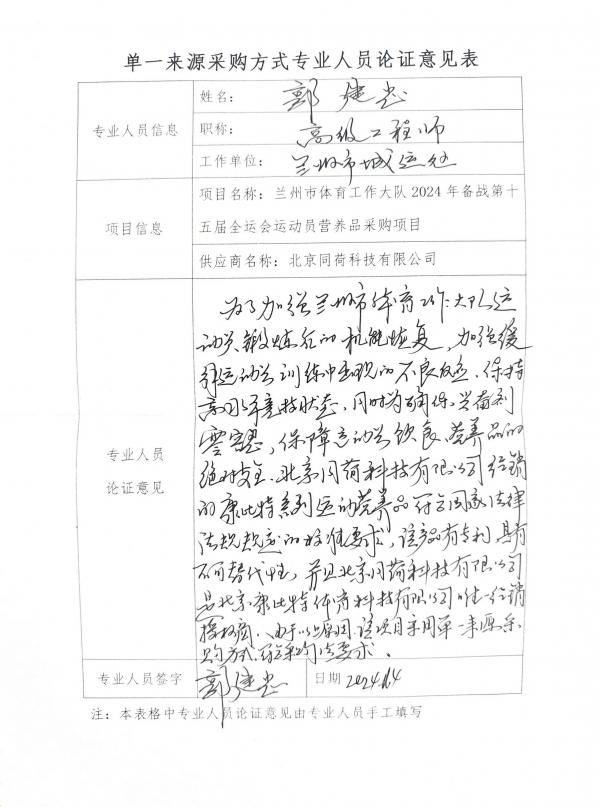 单一来源采购方式专业人员论证意见表
专业人员信息
姓名：郭建忠
职称：高级工程师
工作单位：兰州市城运处
项目信息
项目名称：兰州市体育工作大队2024年备战第十
五届全运会运动员营养品采购项目
供应商名称：北京同荷科技有限公司
专业人员
论证意见
为了加强兰州市体育工作大队运
动员锻炼后的机能恢复，加强缓
解运动员训练中出现的不良反应，保持
高水平竞技状态，同时为确保兴奋剂
零容忍，保障运动员饮食、营养品的
绝对安全，北京同荷科技有限公司经销
的康比特系列运动营养品符合国家法律
法规规定的标准要求，该产品有专利，具有
不可替代性，并且北京同荷科技有限公司
是北京康比特体育科技有限公司唯一经销
授权商，由于以上原因，该项目采用单一来源采
购方式，符合采购法要求。
专业人员签字
郭建忠
日期
注：本表格中专业人员论证意见由专业人员手工填写